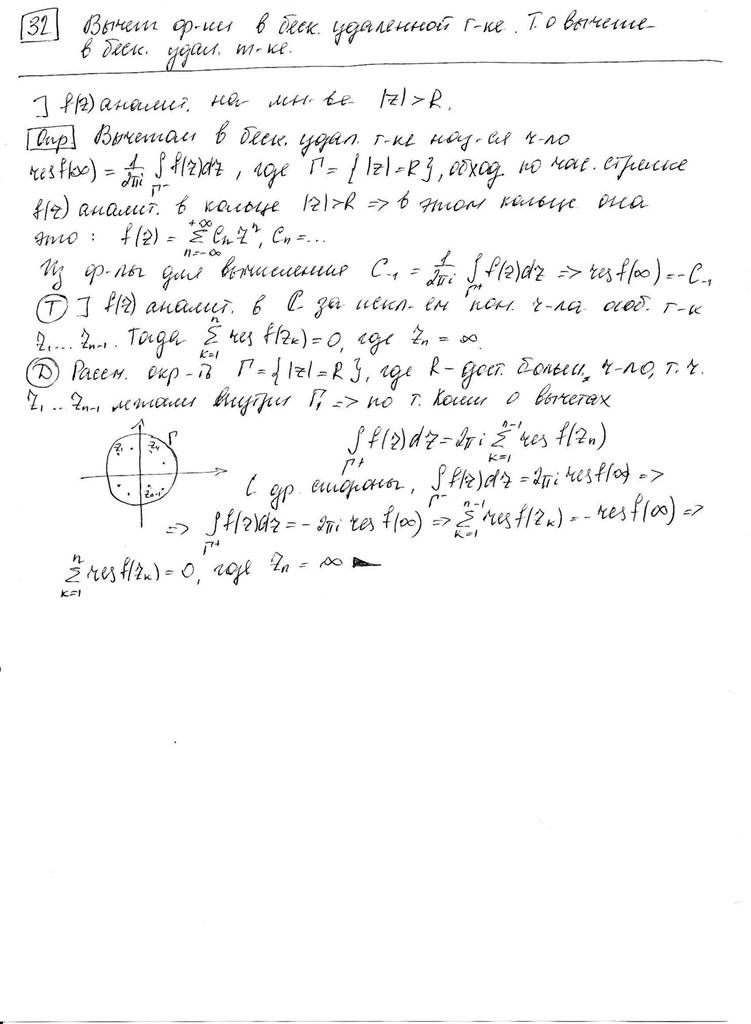 32 Вычет ф-ии в беск. удаленной т-ке. Т. о вычете
в беск. удал. т-ке.
] f(z) аналит. на мн-ве |z|>R.
Опр Вычетом в беск. удал. т-ке наз-ся ч-ло
resf(∞) = 1/2πi ∫_Γ⁻ f(z)dz, где Γ = {|z|=R}, обход по час. стрелке
f(z) аналит. в кольце |z|>R => в этом кольце она
это: f(z) = Σ_{n=-∞}^{+∞} Cₙ Zⁿ, Cₙ = ...
Из ф-лы для вычисления C₋₁ = 1/2πi ∫_Γ⁺ f(z)dz => res f(∞) = -C₋₁
Т ] f(z) аналит. в C за искл-ем кон. ч-ла особ. т-к
Z₁...Zₙ₋₁. Тогда Σ_{k=1}^{n} res f(Zₖ) = 0, где Zₙ = ∞.
Д Рассм. окр-ть Γ = {|z|=R}, где R - дост. больш. ч-ло, т.ч.
Z₁...Zₙ₋₁ лежали внутри Γ, => по т. Коши о вычетах
Z₁ Z₄ Γ Zₙ₋₁
∫_Γ⁺ f(z)dz = 2πi Σ_{k=1}^{n-1} res f(Zₙ)
С др. стороны, ∫_Γ⁻ f(z)dz = 2πi res f(∞) =>
=> ∫_Γ⁺ f(z)dz = -2πi res f(∞) => Σ_{k=1}^{n-1} res f(Zₖ) = -res f(∞) =>
Σ_{k=1}^{n} res f(Zₖ) = 0, где Zₙ = ∞